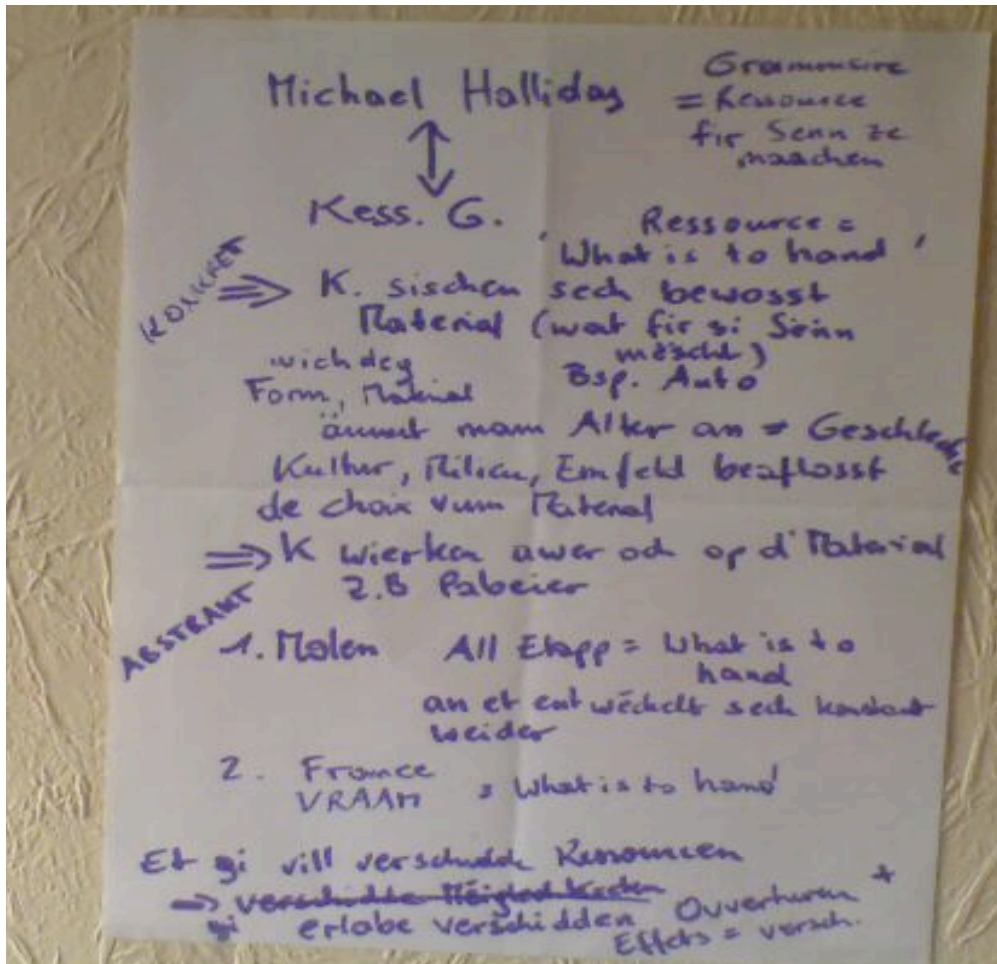 Michael Halliday
Grammaire
= Ressource
fir Senn ze
maachen
↕
Kess. G.
Ressource =
'What is to hand'
KONKRET
⇒ K. sischen sech bewosst
Material (wat fir si Sënn
mëscht)
wichteg
Form, Material
Bsp. Auto
ännert mam Alter an + Geschlecht
Kultur, Milieu, Emfeld beaflosst
de choix vum Material
⇒ K wierken awer och op d'Material
z.B Pabeier
ABSTRAKT
1. Molen
All Etapp = What is to
hand
an et entwéckelt sech konstant
weider
2. France
VRAAM = What is to hand
Et gi vill verschidde Ressourcen
⇒ verschidde Méiglechkeeten
gi erlabe verschidden Ouverturen +
Effets = versch.